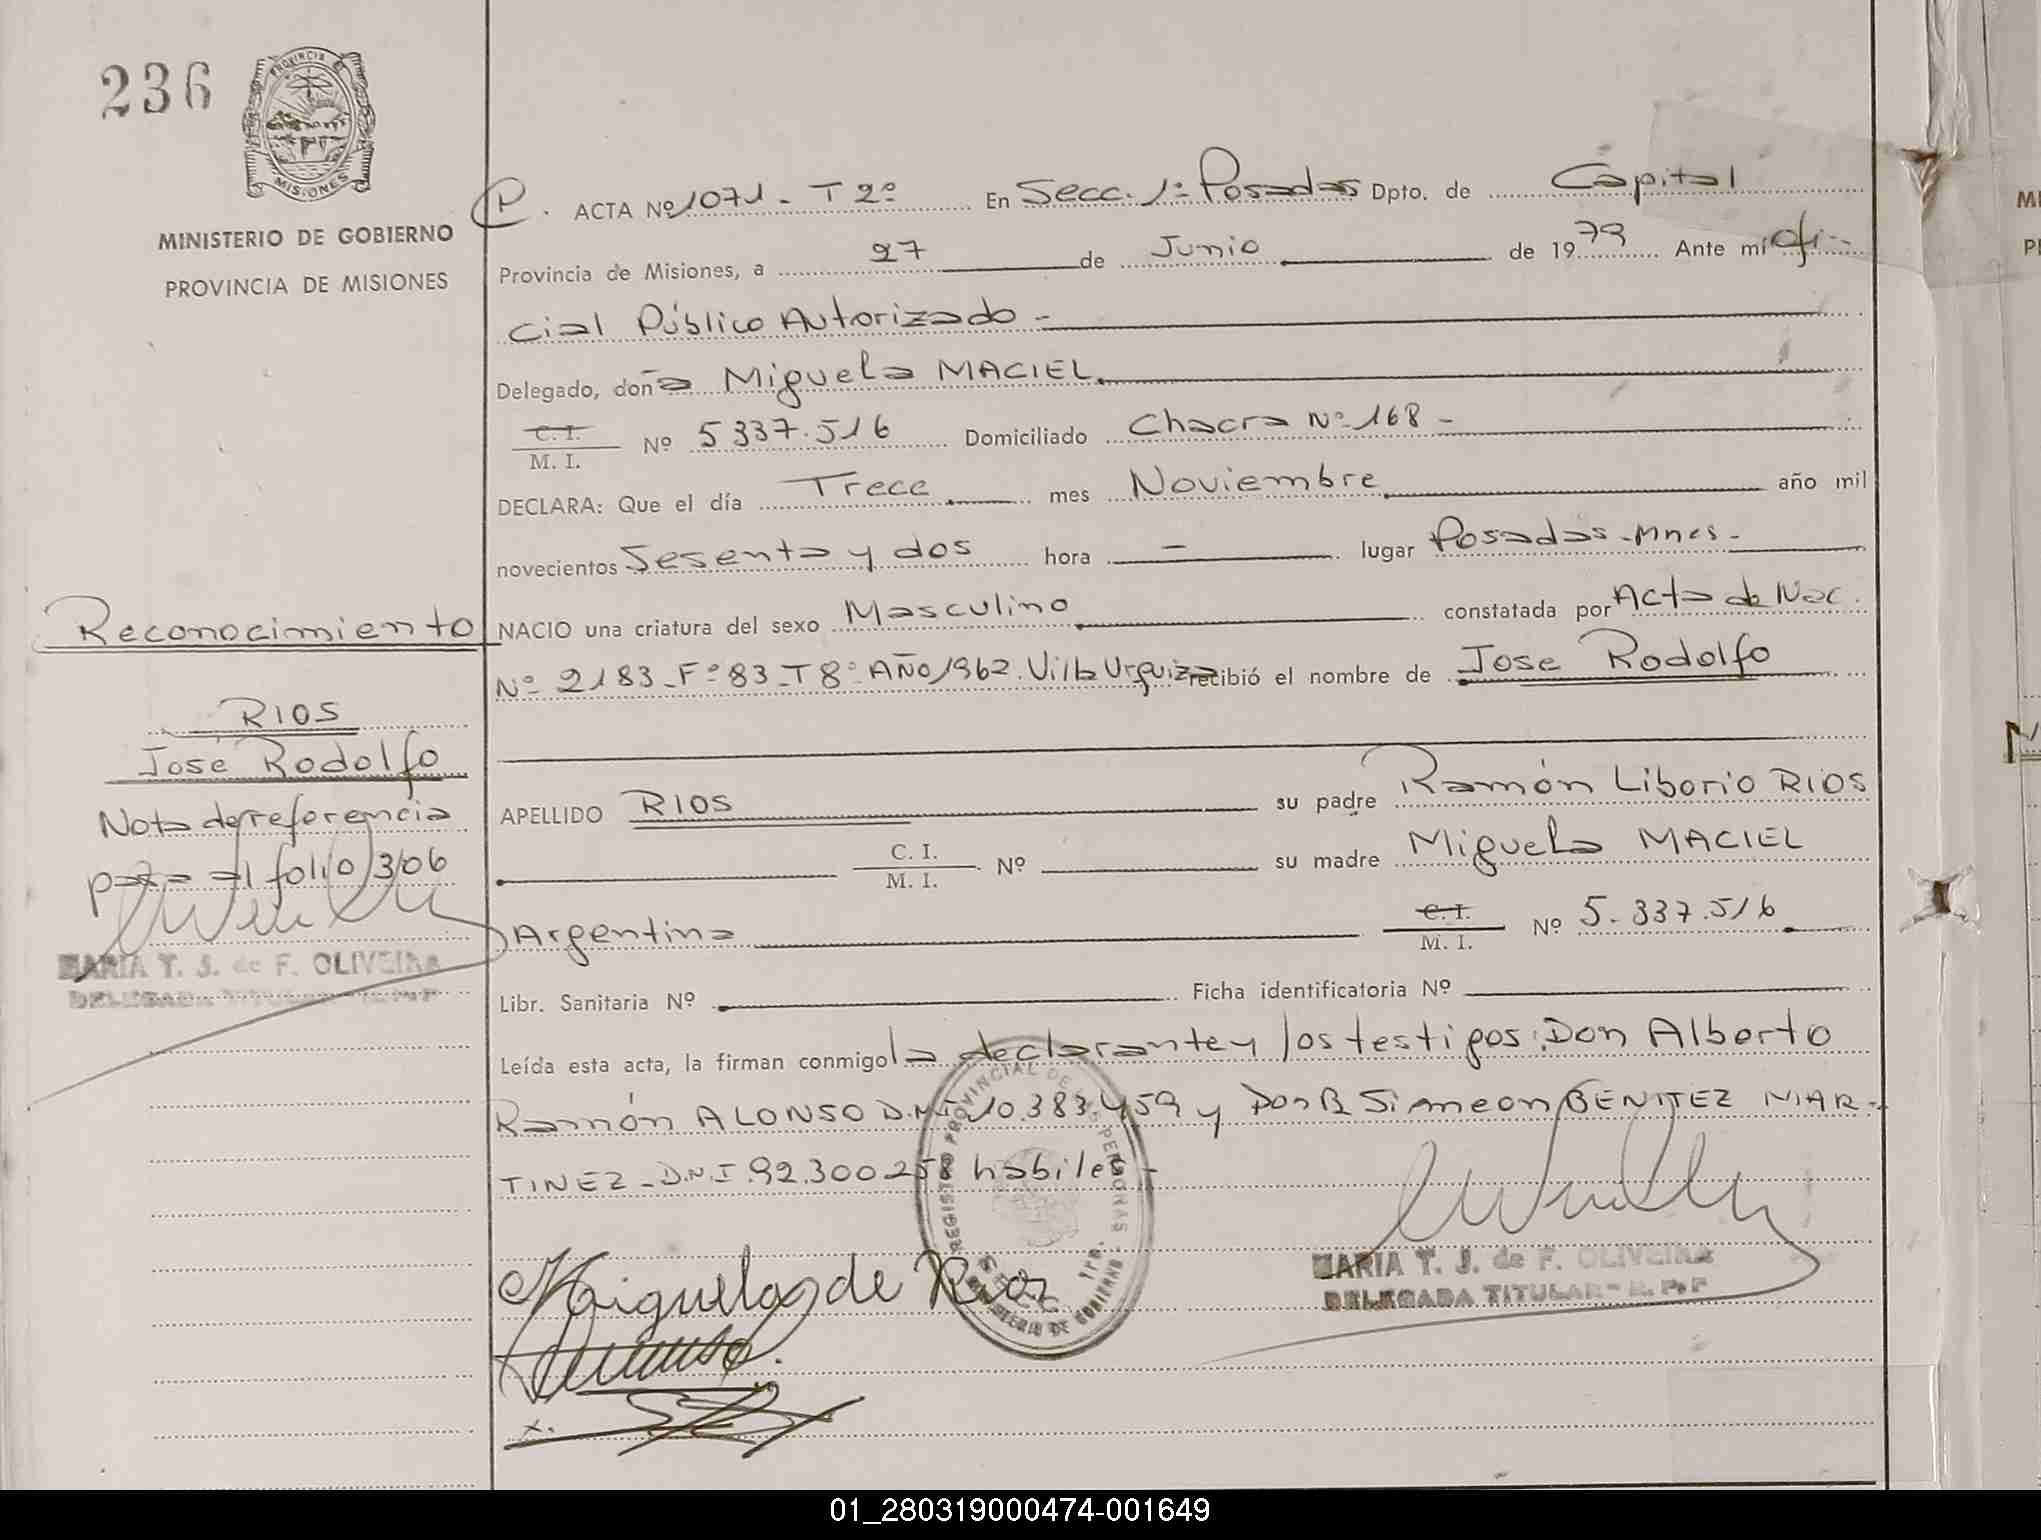 236
PROVINCIA DE
MISIONES
MINISTERIO DE GOBIERNO
PROVINCIA DE MISIONES
P. ACTA Nº 1071 - T 2º En Secc. 1º Posadas Dpto. de Capital
Provincia de Misiones, a 27 de Junio de 1979 Ante mí Ofi-
cial Público Autorizado -
Delegado, doña Miguela MACIEL
C. I. / M. I. Nº 5337.516 Domiciliado Chacra Nº 168 -
DECLARA: Que el día Trece mes Noviembre año mil
novecientos Sesenta y dos hora - lugar Posadas - Mnes -
Reconocimiento
NACIO una criatura del sexo Masculino constatada por Acta de Nac.
Nº 2183 - Fº 83 - T 8º AÑO 1962. Villa Urquiza recibió el nombre de Jose Rodolfo
RIOS
José Rodolfo
Nota de referencia
pasa al folio 306
MARIA T. J. de F. OLIVEIRA
DELEGADA TITULAR
APELLIDO RIOS su padre Ramón Liborio RIOS
C. I. / M. I. Nº su madre Miguela MACIEL
Argentina C. I. / M. I. Nº 5.337.516
Libr. Sanitaria Nº Ficha identificatoria Nº
Leída esta acta, la firman conmigo la declarante y los testigos: Don Alberto
Ramón ALONSO D.N.I 10.383.459 y Don Simeon BENITEZ MAR-
TINEZ - D.N.I. 92.300258 habiles -
REGISTRO PROVINCIAL DE LAS PERSONAS
MINISTERIO DE GOBIERNO
Miguela de Rios
MARIA T. J. de F. OLIVEIRA
DELEGADA TITULAR - R. P. P
01_280319000474-001649